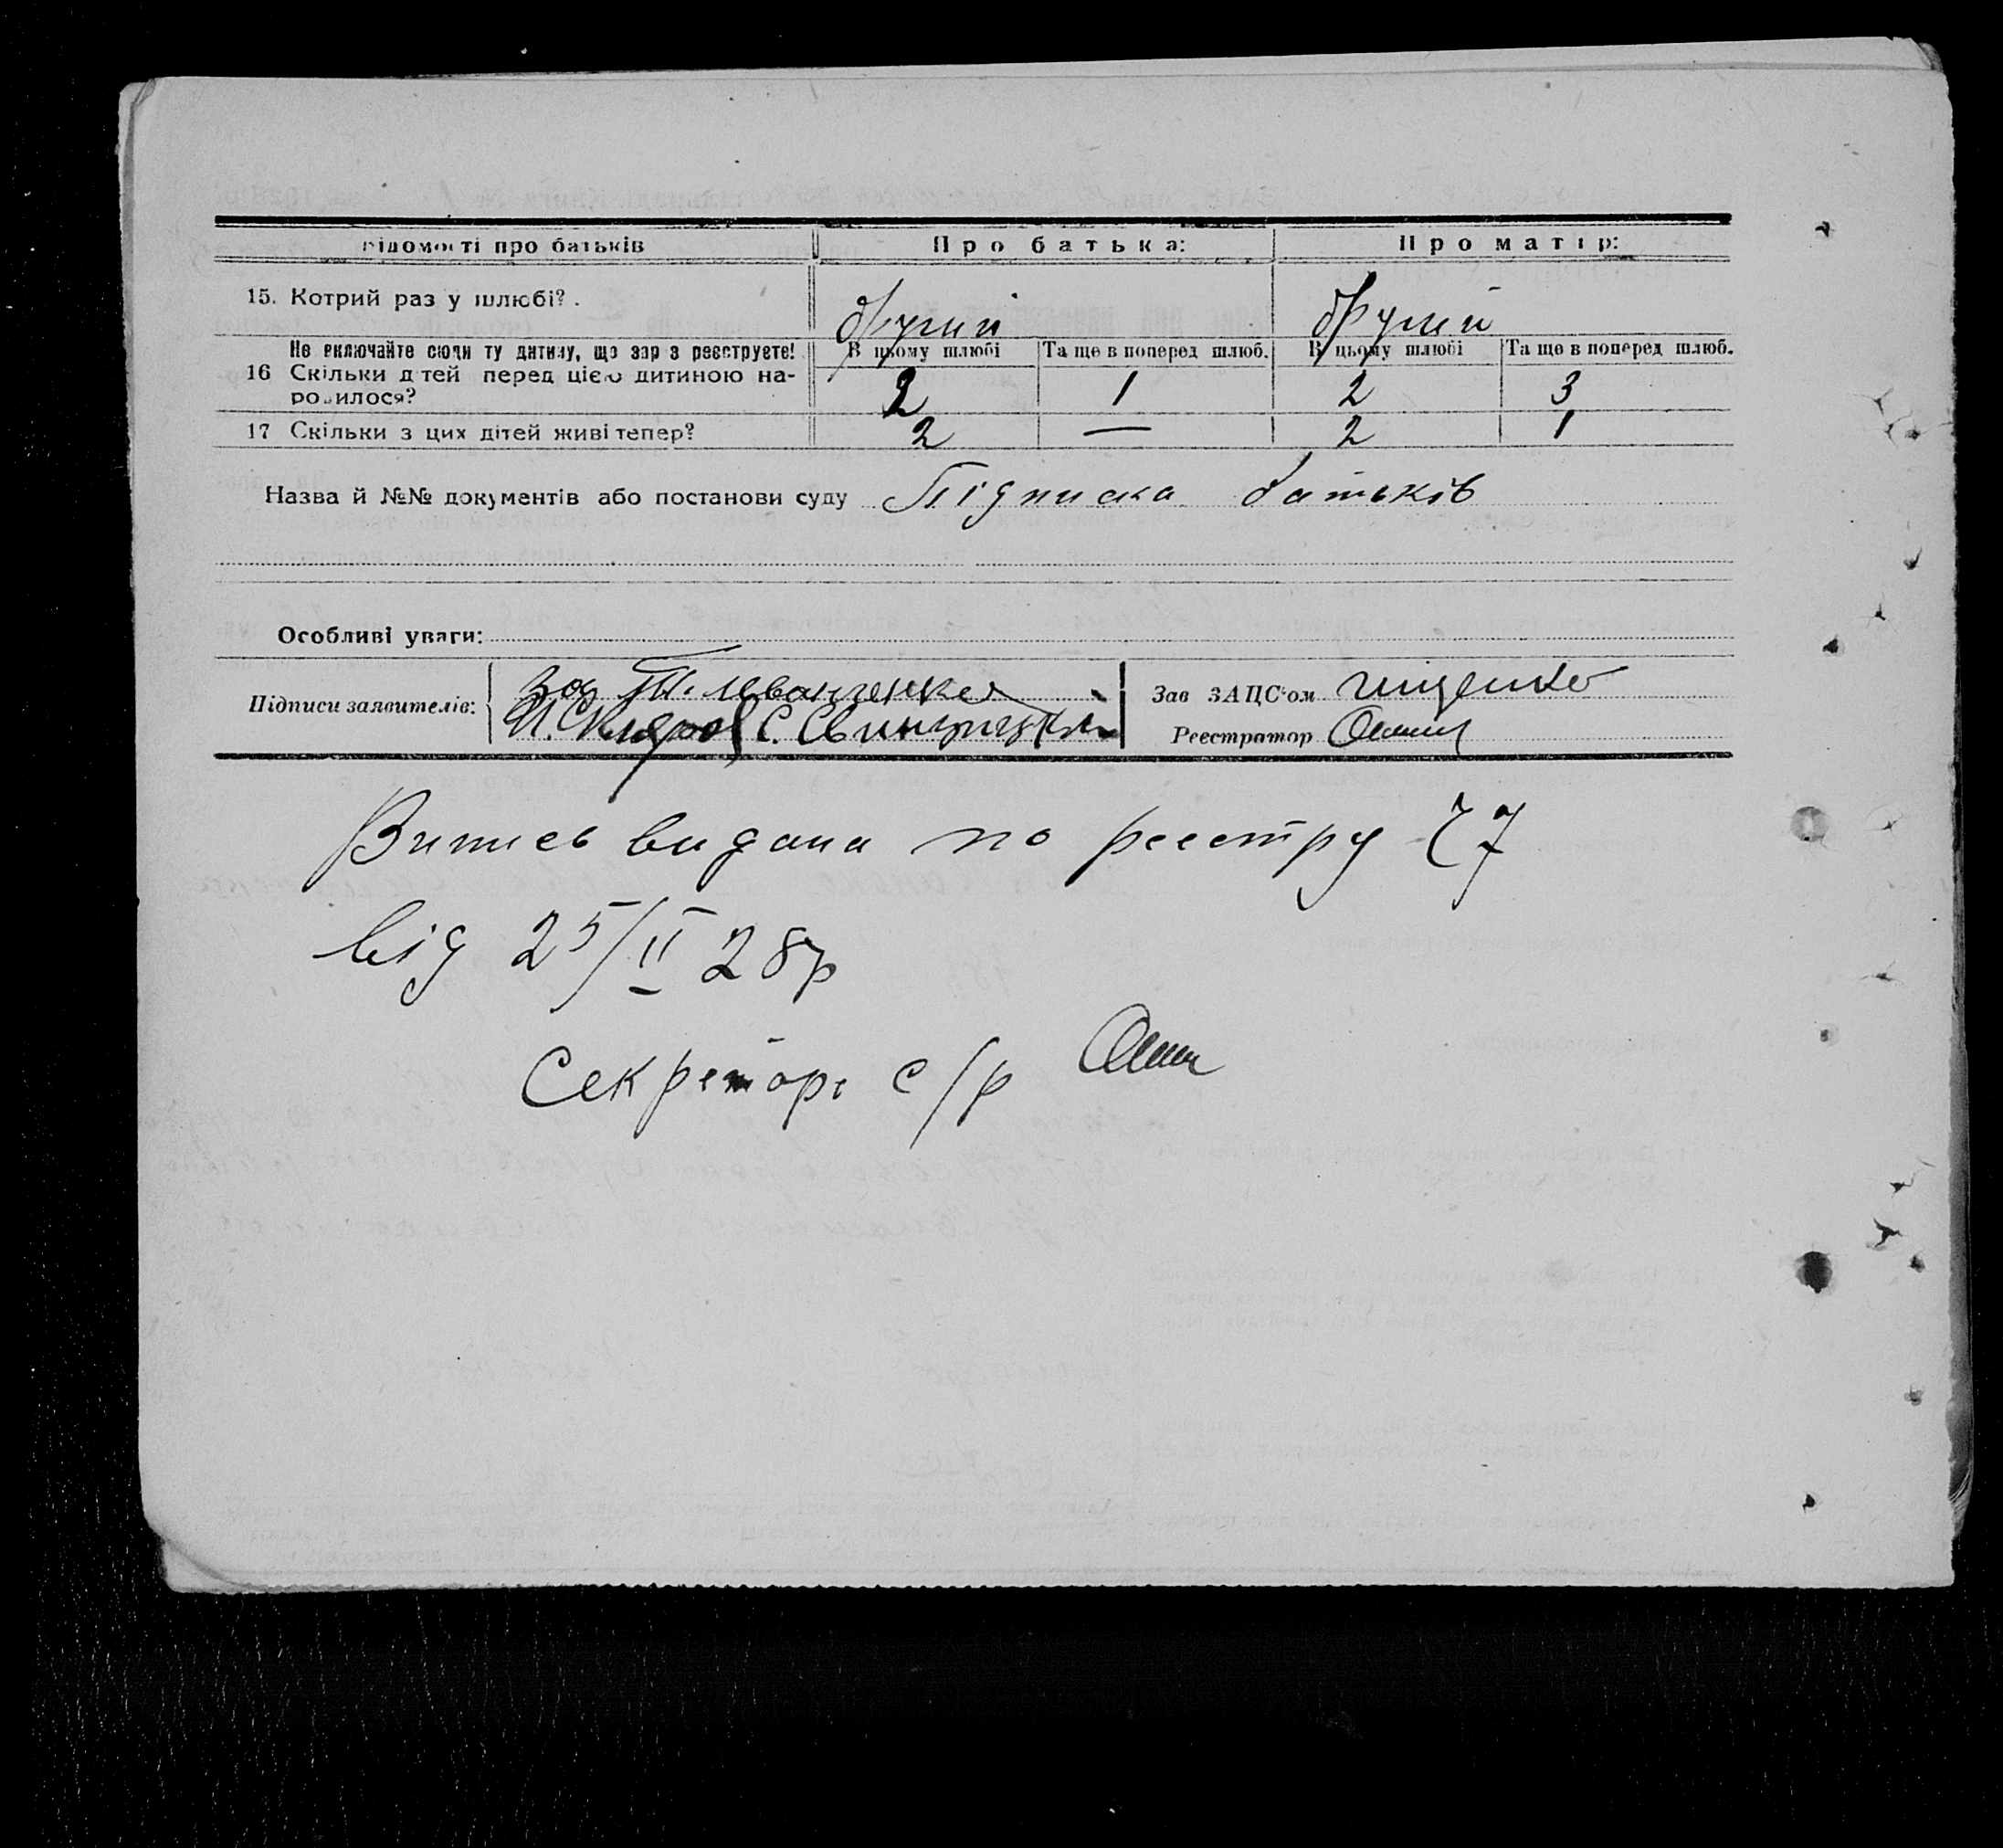 Відомості про батьків Про батька: Про матір:
15. Котрий раз у шлюбі? другий другий
Не включайте сюди ту дитину, що зараз реєструєте! В цьому шлюбі Та ще в поперед шлюб. В цьому шлюбі Та ще в поперед шлюб.
16 Скільки дітей перед цією дитиною на-
родилося? 2 1 2 3
17 Скільки з цих дітей живі тепер? 2 — 2 1
Назва й №№ документів або постанови суду Підписка батьків
Особливі уваги:
Підписи заявителів: за
И. Скляров С.
Зав ЗАЦС'ом
Реєстратор
Витись видана по реєстру 27
від 25/II 28р
Секретарь с/р